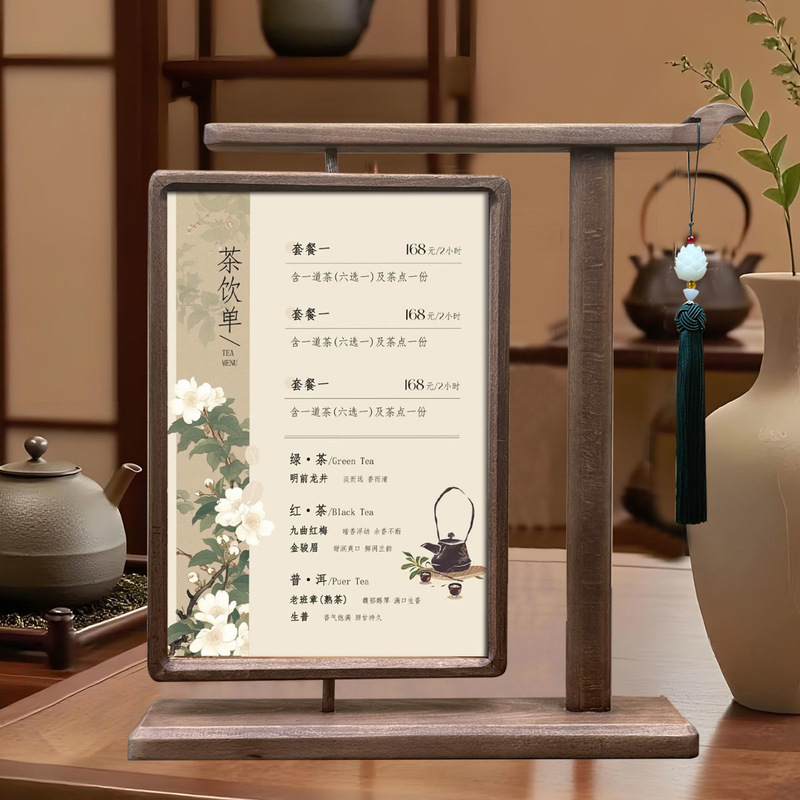 茶饮单/
TEA
MENU
套餐一 168元/2小时
含一道茶(六选一)及茶点一份
套餐一 168元/2小时
含一道茶(六选一)及茶点一份
套餐一 168元/2小时
含一道茶(六选一)及茶点一份
绿·茶/Green Tea
明前龙井 淡而远 香而清
红·茶/Black Tea
九曲红梅 暗香浮动 余香不断
金骏眉 甜润爽口 鲜阔兰韵
普·洱/Puer Tea
老班章(熟茶) 馥郁醇厚 满口生香
生普 香气饱满 回甘持久